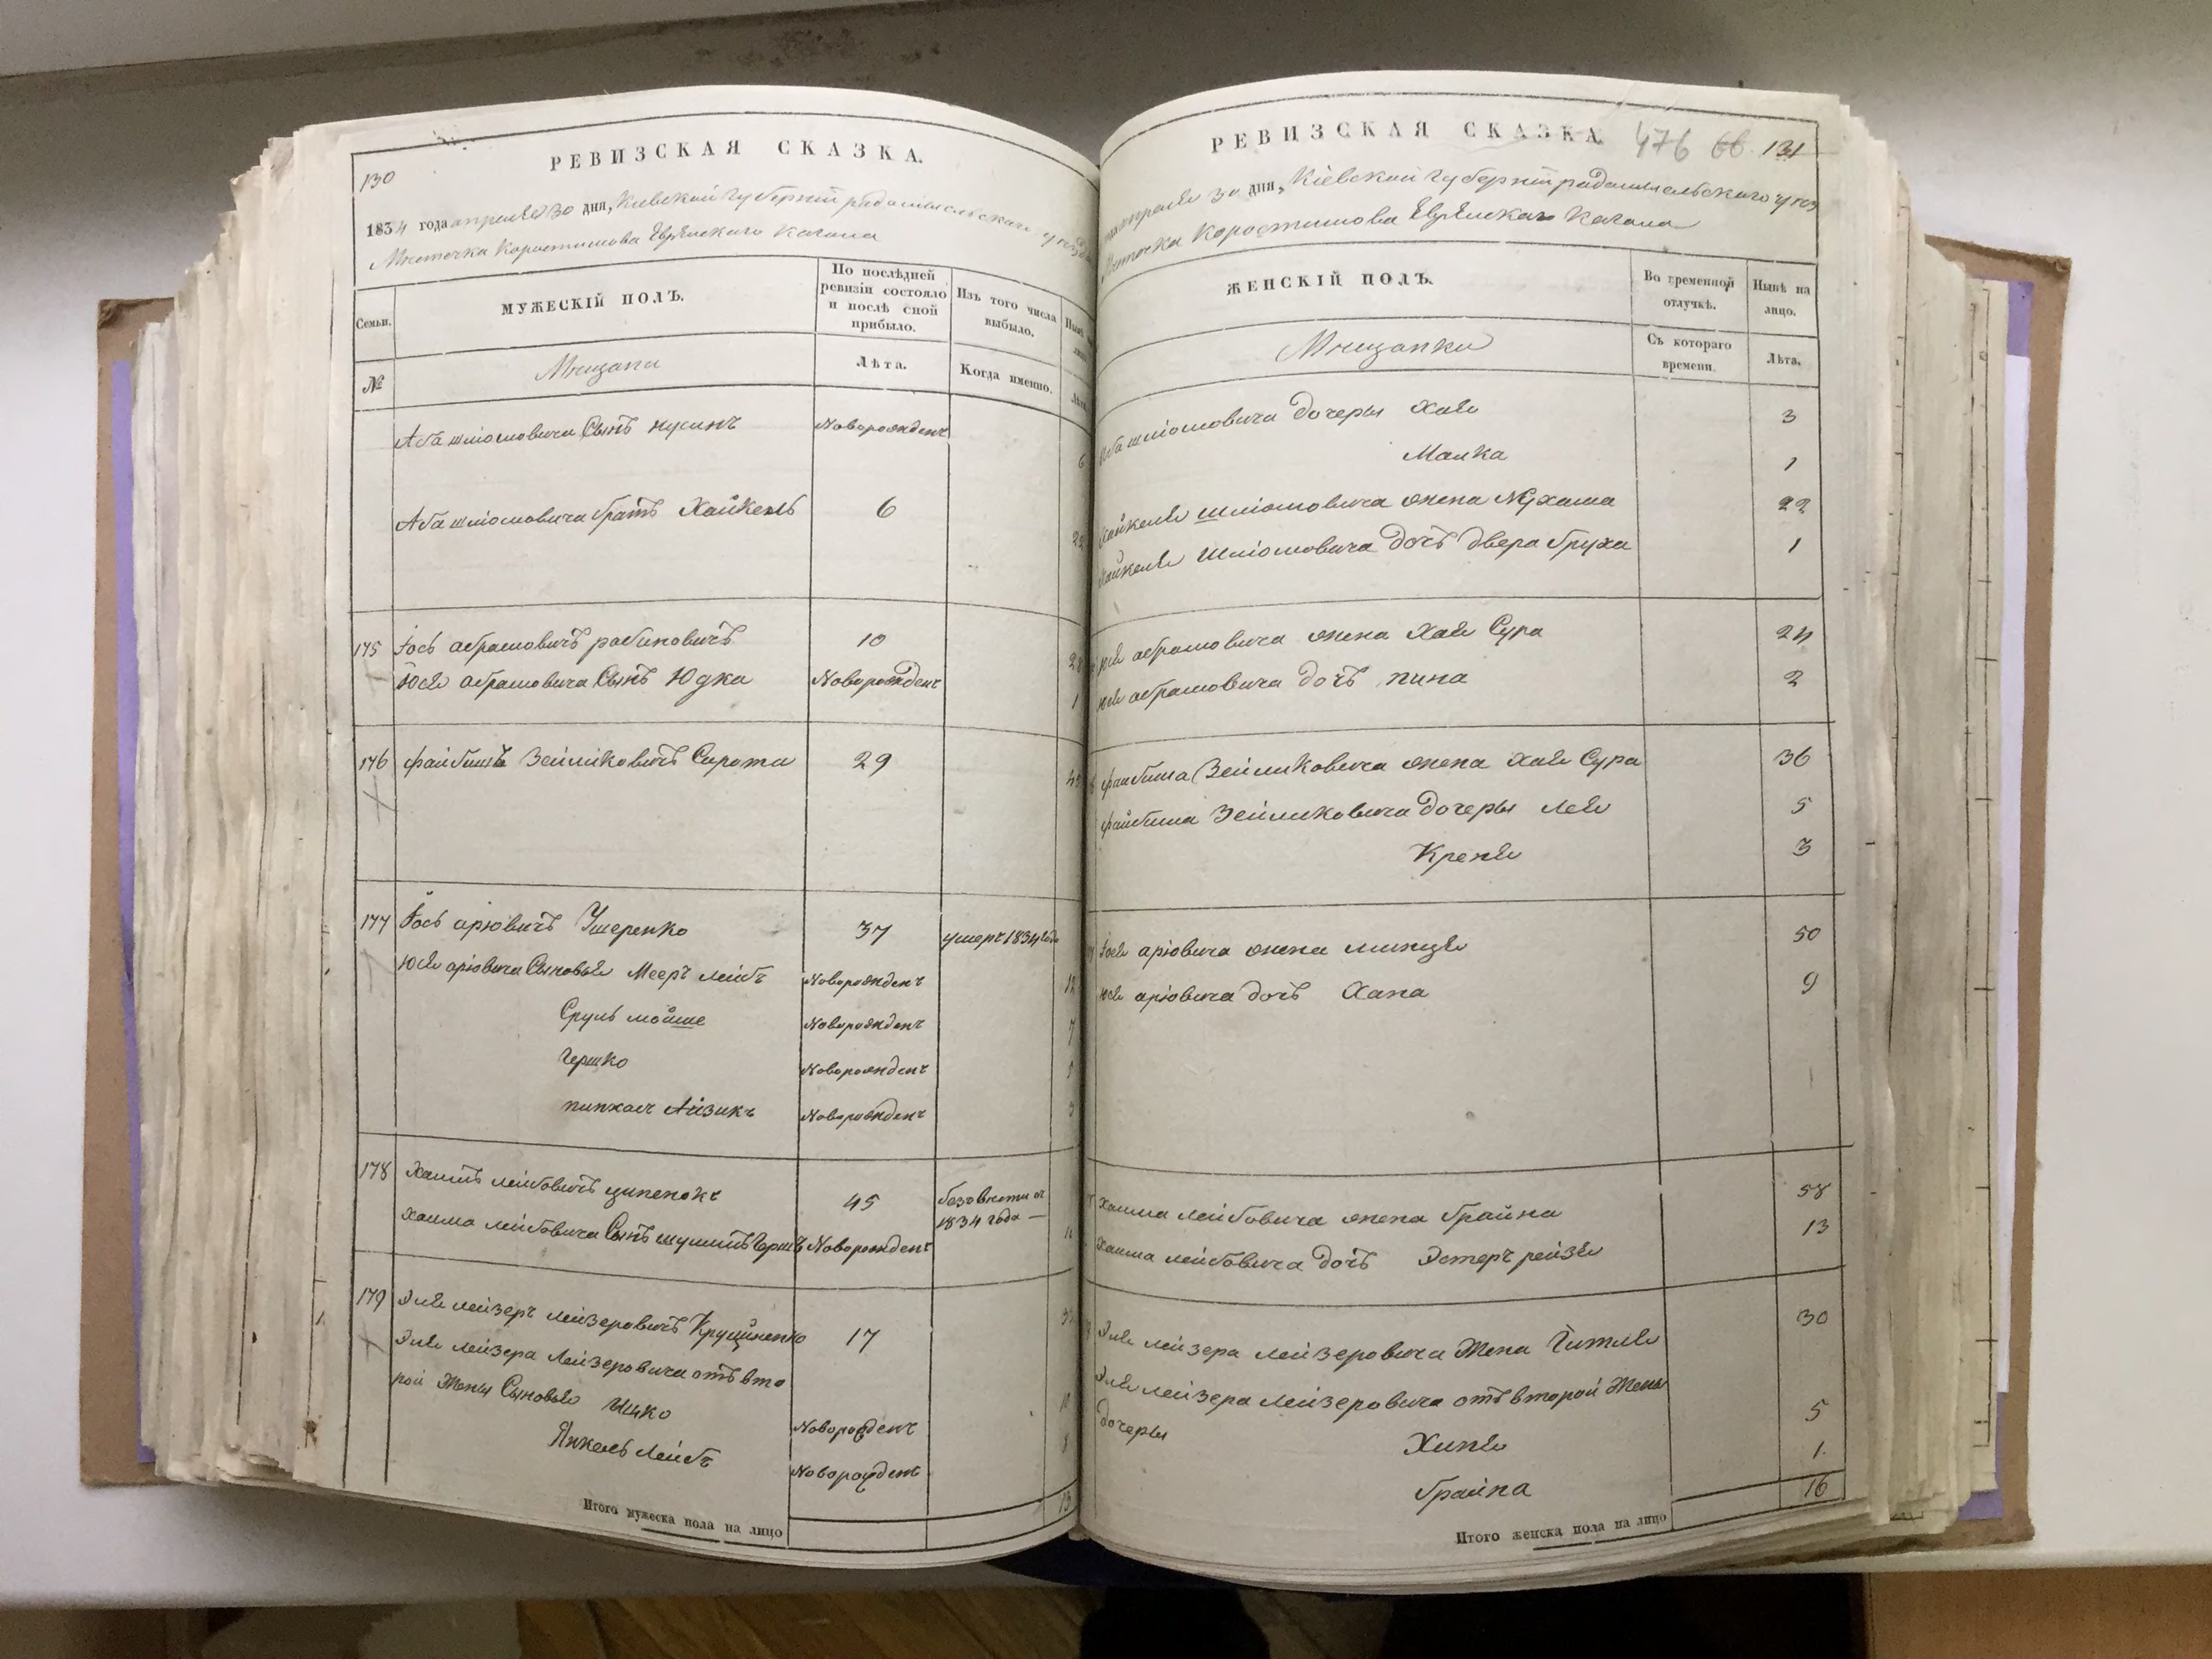 130
РЕВИЗСКАЯ СКАЗКА.
1834 года апреля 30 дня, Киевской Губернiи радомысльского уезда
Мѣстечка Коростишова Еврѣйскаго Кагала
Семьи.
МУЖЕСКІЙ ПОЛЪ.
По послѣдней ревизіи состояло и послѣ сной прибыло.
Изъ того числа выбыло.
№
Мещане
Лѣта.
Когда именно.
Лѣта
Аба шліомовича Сынъ нусинъ Новорожденъ 6
Аба шліомовича братъ Хайкель 6 22
175 Іось абрамовичъ рабиновичъ 10 28
Іося абрамовича Сынъ Юдка Новорожденъ 1
176 файбишъ Зейликовичъ Сирота 29
177 Іось аріовичъ Ушеренко 37 умеръ 1834 года
Іося аріовича Сыновья Мееръ лейбъ Новорожденъ 12
Сруль мойше Новорожденъ 7
Гершко Новорожденъ
пинхас Айзикъ Новорожденъ 3
178 Хаимъ лейбовичъ ципенокъ 45 безвѣсти съ 1834 года —
хаима лейбовича Сынъ шулимъ Гершъ Новорожденъ 11
179 Эля лейзеръ лейзеровичъ Крущиненко 17
Эля лейзера Лейзеровича отъ вто
рой Жены Сыновья Ицко Новорожденъ 10
Янкель Лейбъ Новорожденъ 8
Итого мужеска пола на лицо 13
РЕВИЗСКАЯ СКАЗКА.
476 66 131
апреля 30 дня, Кіевской Губерніи радомысльского уезд
Мѣстечка Коростишова Еврѣйскаго Кагала
ЖЕНСКІЙ ПОЛЪ.
Во временной отлучкѣ.
Нынѣ на лицо.
Мещанки
Съ котораго времени.
Лѣта.
Аба шліомовича дочеры Хая 3
Малка 1
Хайкеля шліомовича жена Нухама 22
Хайкеля Шліомовича дочъ двера бруха 1
Іося абрамовича жена Хая Сура 24
Іося абрамовича дочъ пина 2
файбиша Зейликовича жена Хая Сура 36
файбиша Зейликовича дочеры Лея 5
Креня 3
Іося аріовича жена минця 50
Іося аріовича дочъ Хана 9
Хаима лейбовича жена брайна 58
Хаима лейбовича дочъ Эстеръ рейзя 13
Эля лейзера лейзеровича Жена Гитля 30
Эля лейзера лейзеровича отъ второй Жены
дочеры
Хиня 5
брайна 1
Итого женска пола на лицо 16